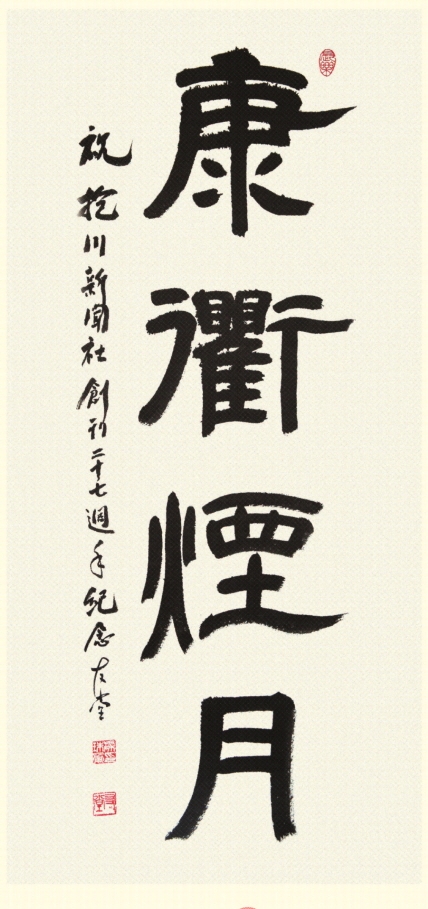 康衢煙月
祝抱川新聞社創刊二十七週年紀念 友堂